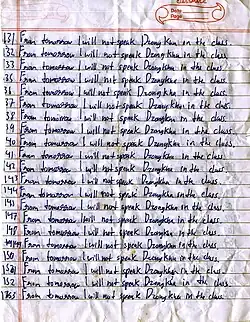 Date
Page
131 From tomorrow I will not speak Dzongkha in the class.
132 From tomorrow I will not speak Dzongkha in the class.
133 From tomorrow I will not speak Dzongkha in the class.
35 From tomorrow I will not speak Dzongkha in the class.
36 From tomorrow I will not speak Dzongkha in the class.
37 From tomorrow I will not speak Dzongkha in the class.
38 From tomorrow I will not speak Dzongkha in the class.
39 From tomorrow I will not speak Dzongkha in the class.
40 From tomorrow I will not speak Dzongkha in the class.
41 From tomorrow I will not speak Dzongkha in the class.
From tomorrow I will not speak Dzongkha in the class.
143 From tomorrow I will not speak Dzongkha in the class.
144 From tomorrow I will not speak Dzongkha in the class.
145 From tomorrow I will not speak Dzongkha in the class.
147 From tomorrow I will not speak Dzongkha in the class.
148 From tomorrow I will not speak Dzongkha in the class.
From tomorrow I will not speak Dzongkha in the class.
150 From tomorrow I will not speak Dzongkha in the class.
151 From tomorrow I will not speak Dzongkha in the class.
152 From tomorrow I will not speak Dzongkha in the class.
From tomorrow I will not speak Dzongkha in the class.